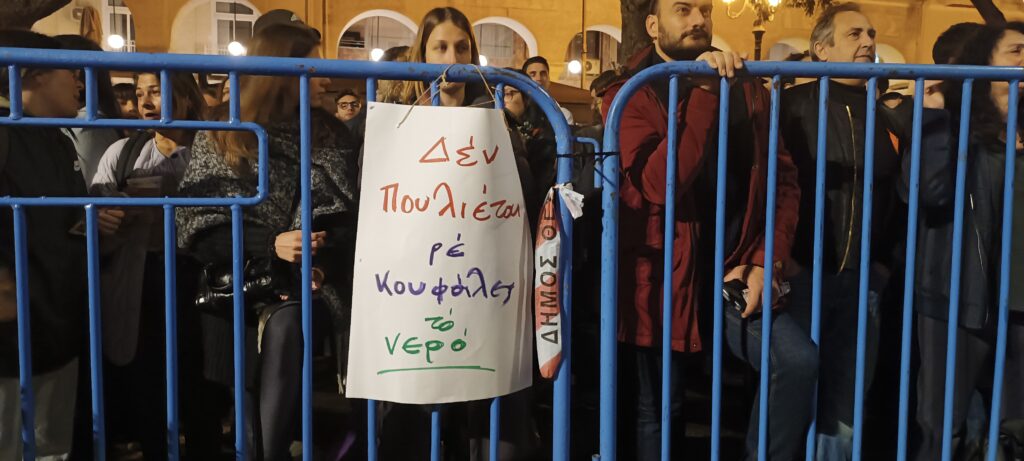 Δέν
Πουλιέται
ρέ
Κουφάλες
τό
νερό
ΔΗΜΟΣ ΘΕ